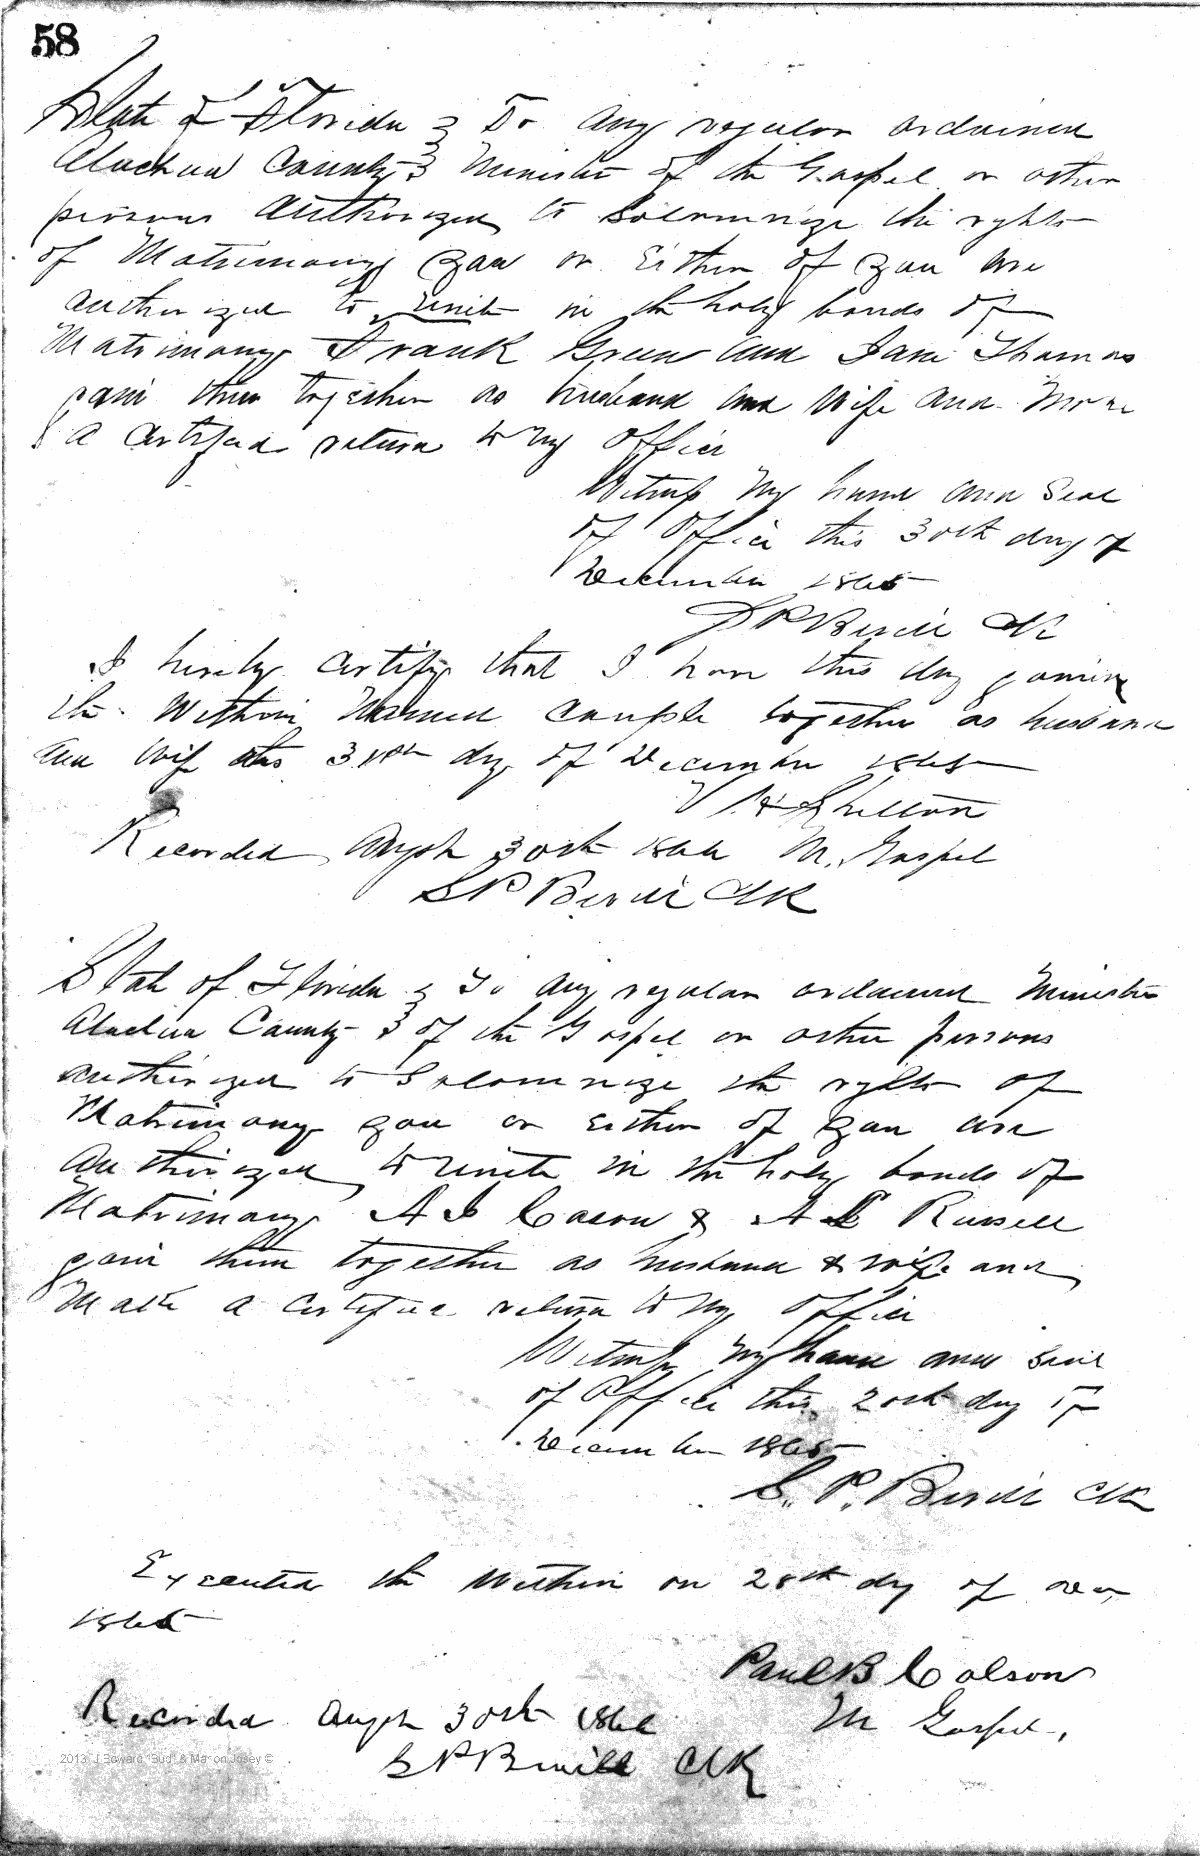 58
State of Florida } To any regular ordained
Alachua County } Minister of the Gospel or other
persons Authorized to Solemnize the rights
of Matrimony you or Either of you are
authorized to unite in the holy bonds of
Matrimony Frank Green and Jane Thomas
join them together as husband and Wife and Make
a Certified return to my office
Witness My hand and Seal
of Office this 30th day of
December 1865
S P Bevill Clk
I hereby Certify that I have this day joined
the Within Named Couple together as husband
and Wife this 31st day of December 1865
Shelton
Recorded Augst 30th 1866 M. Gospel
S P Bevill Clk
State of Florida } To any regular ordained Minister
Alachua County } of the Gospel or other persons
authorized to Solemnize the rights of
Matrimony you or Either of you are
Authorized to unite in the holy bonds of
Matrimony A I Cason & A L Russell
join them together as husband & wife and
Make a Certified return to my office
Witness My hand and Seal
of Office this 20th day of
December 1865
S. P. Bevill Clk
Executed the Within on 28th day of Dec
1865
Paul B Colson
Recorded Augst 30th 1866 M Gospel,
S P Bevill Clk
2013 J Edward "Bud" & Marion Josey ©